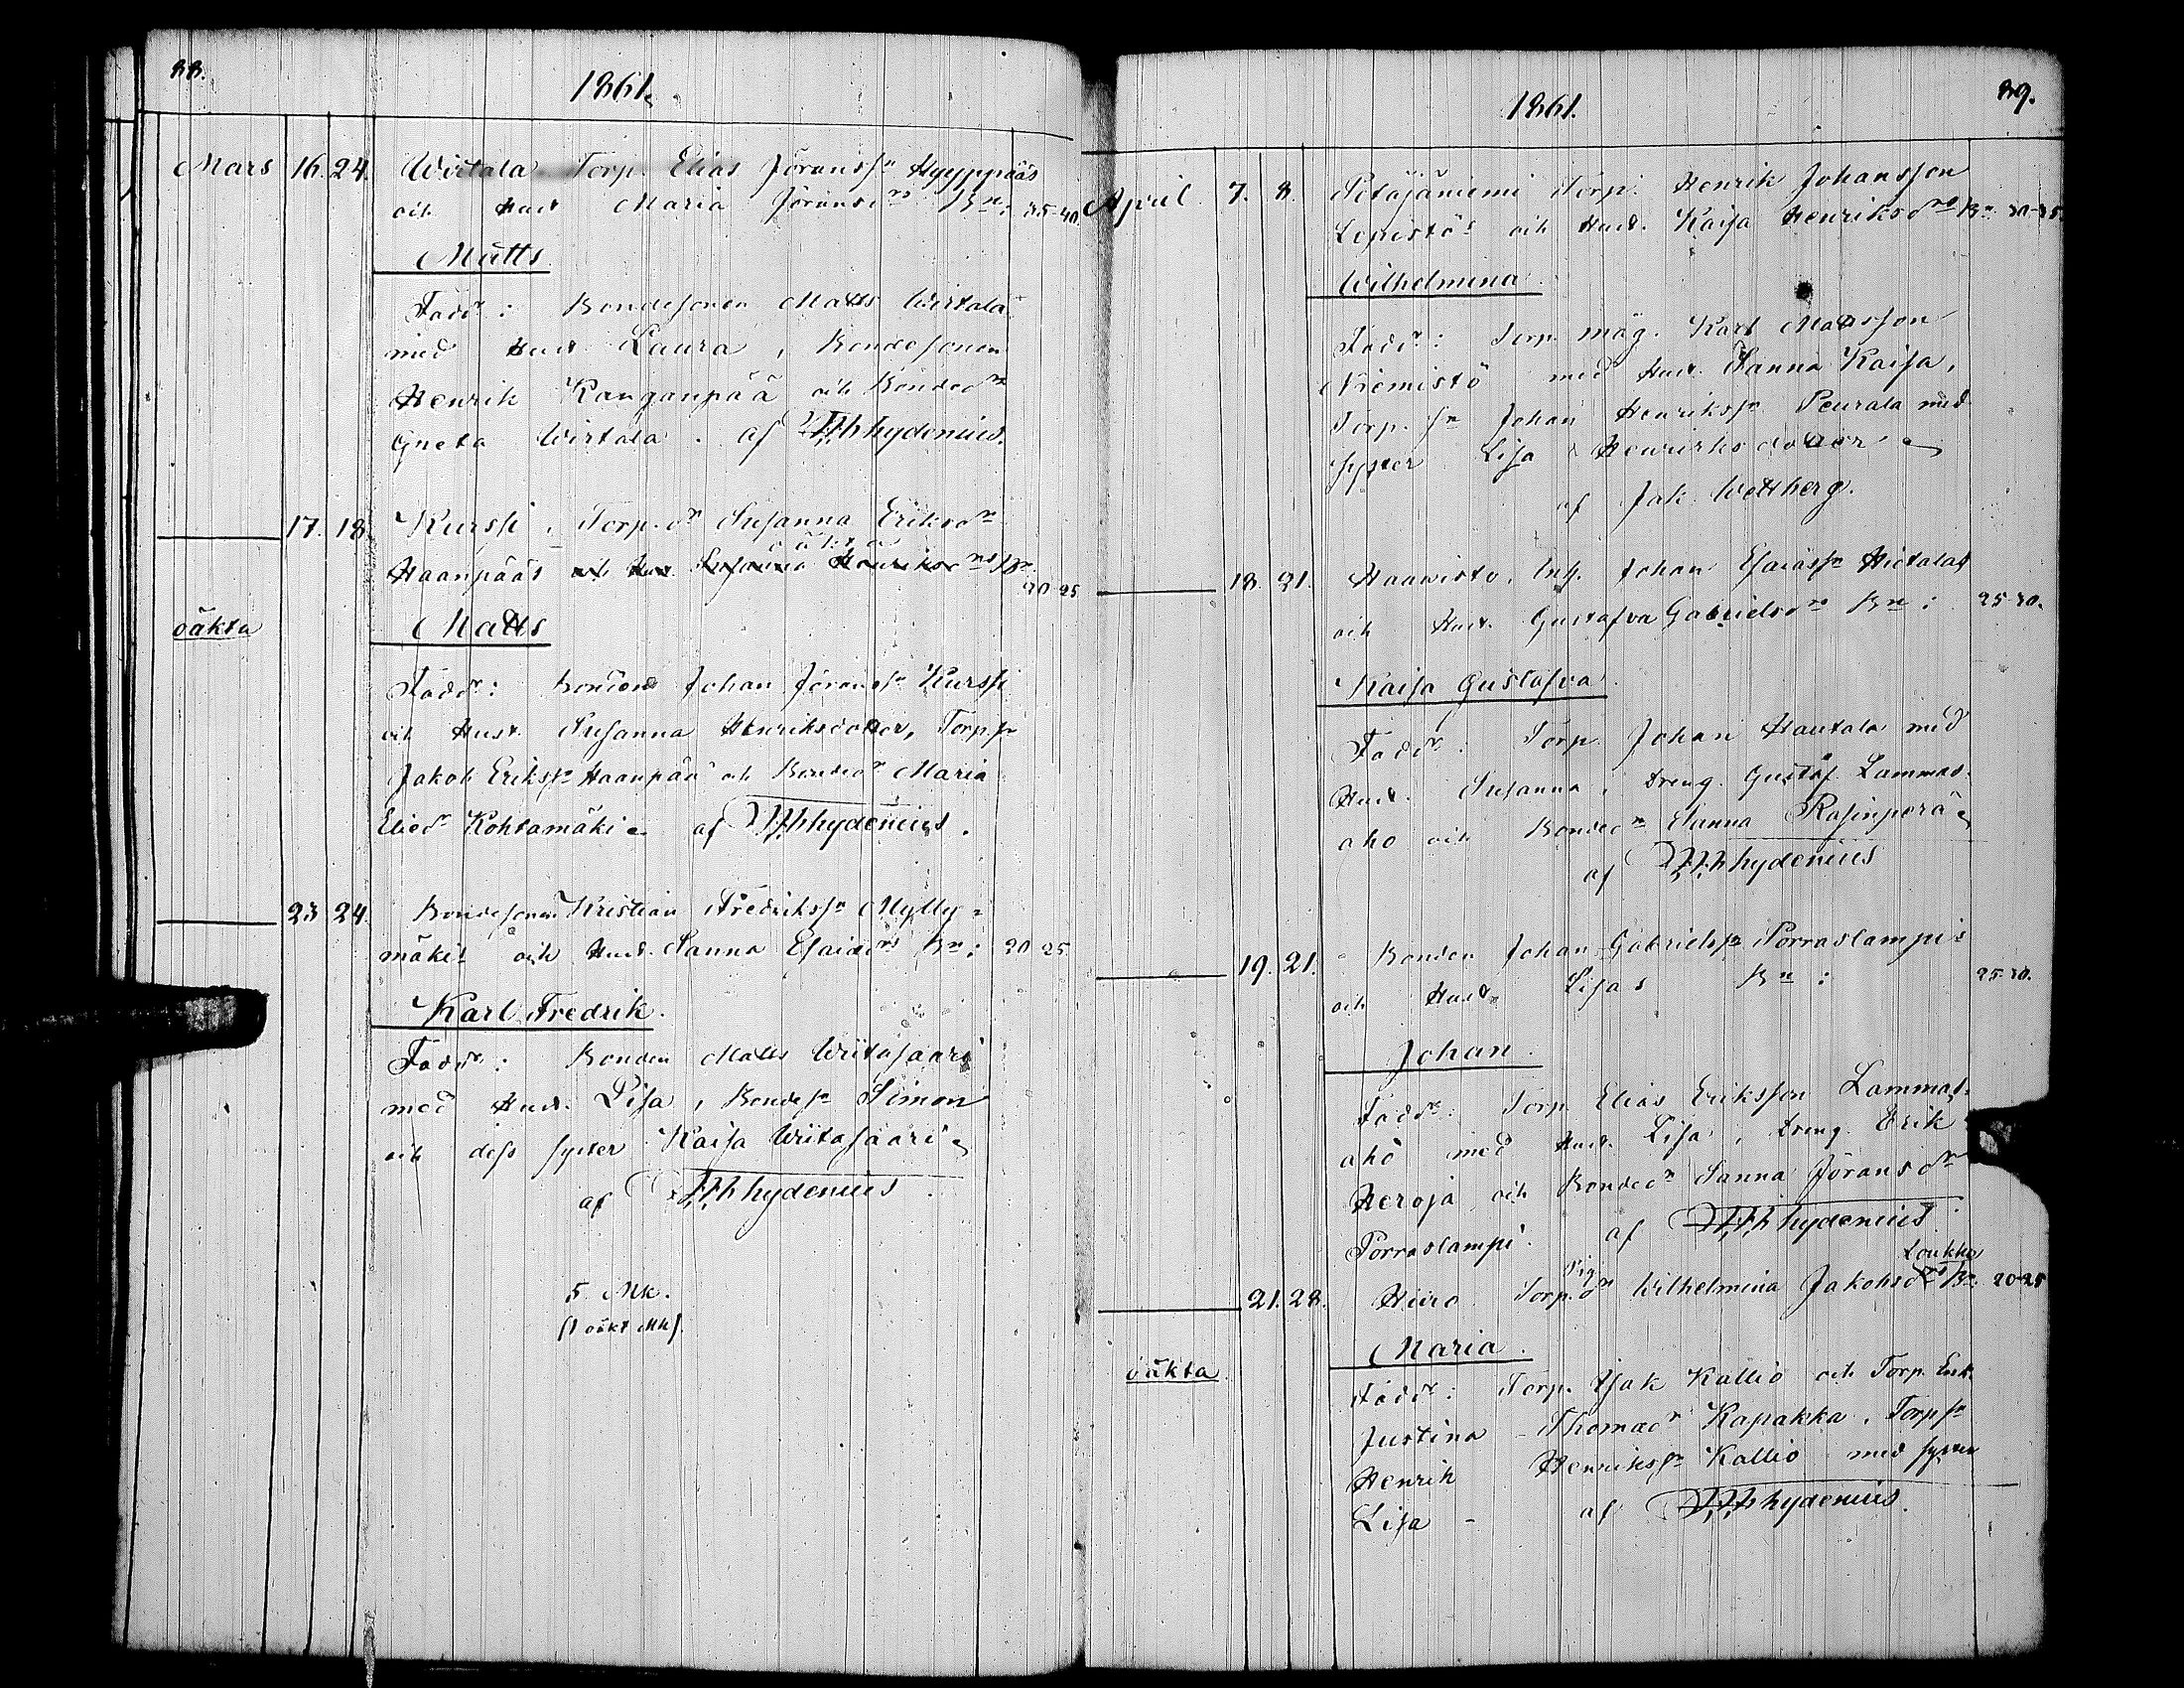 88.
1861.
Mars 16. 24. Wirtala Torp. Elias Jöransſn Hyyppääs
och Hust Maria Jöransdrs Bn: 35-40.
Matts
Faddr: Bondeſonen Matts Wirtala
med Hust Laura, Bondeſonen
Henrik Kanganpää och Bondedr
Greta Wirtala. af hydenius.
17. 18. Kurssi, Torp. dr Suſanna Eriksdr
oäkta
Haanpääs och Hust. Suſanna Henriksdrs Bn.
20-25
oäkta
Matts
Faddr: Bonden Johan Jöransſn Kurſſi
och Hust. Suſanna Henriksdotter, Torp.ſn
Jakob Eriksſn Haanpää och Bondedr Maria
Eliedr Kohtamäki af hydenius.
23. 24. Bondeſonen Kristian Fredriksſn Mylly=
mäkis och Hust. Sanna Eſaiædrs Bn: 20-25.
Karl Fredrik.
Faddr: Bonden Matts Wiitaſaari
med Hust. Liſa, Bondeſn Simon
och deſs ſyster Kaiſa Wiitaſaari
af hydenius.
5 Mk.
(1 oäkt Mk).
89.
1861.
April. 7. 8. Petäjäniemi Torp. Henrik Johansſon
Lepistös och Hust. Kaiſa Henriksdrs Bn. 30-35.
Wilhelmina.
Faddr: Torp. måg. Karl Matsſon
Niemistö med Hust. Sanna Kaiſa,
Torp. ſn Johan Henriksſn Peurala med
ſyster Liſa Henriksdotter
af Jak. Wettberg.
18. 21. Haawisto, Inh. Johan Eſaiasſn Hietalas
och Hust. Gustafva Gabrielsdrs Bn: 25-30.
Kaiſa Gustafva.
Faddr: Torp. Johan Hautala med
Hust. Suſanna, dreng. Gustaf Lammas=
aho och Bondedr Sanna Raſinperä
af hydenius
19. 21. Bonden Johan Gabrielsſn Porraslampis
och Hust. Liſas Bn: 25-30.
Johan.
Faddr: Torp. Elias Eriksſon Lammas=
aho med Hust. Liſa, dreng Erik
Heroja och Bondedr Sanna Jöransdr
Porraslampi. af hydenius.
Pig. Loukko
21. 28. Hiiro Torp.dr Wilhelmina Jakobsdrs Bn. 20-25
oäkta
Maria.
Faddr: Torp. Iſak Kallio och Torp. Enk.
Justina Thomædr Kapakka, Torpſn
Henrik Henriksſn Kallio med ſyster
Liſa - af hydenius.